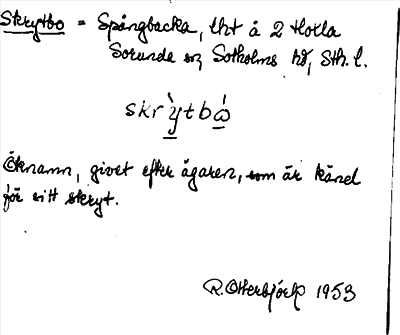 Skrytbo = Spångbacka, lht å 2 Hoxla
Sorunda sn, Sotholms hd, Sth. l.
skrỳtbὼ
Öknamn, givet efter ägaren, som är känd
för sitt skryt.
R. Otterbjörk 1953